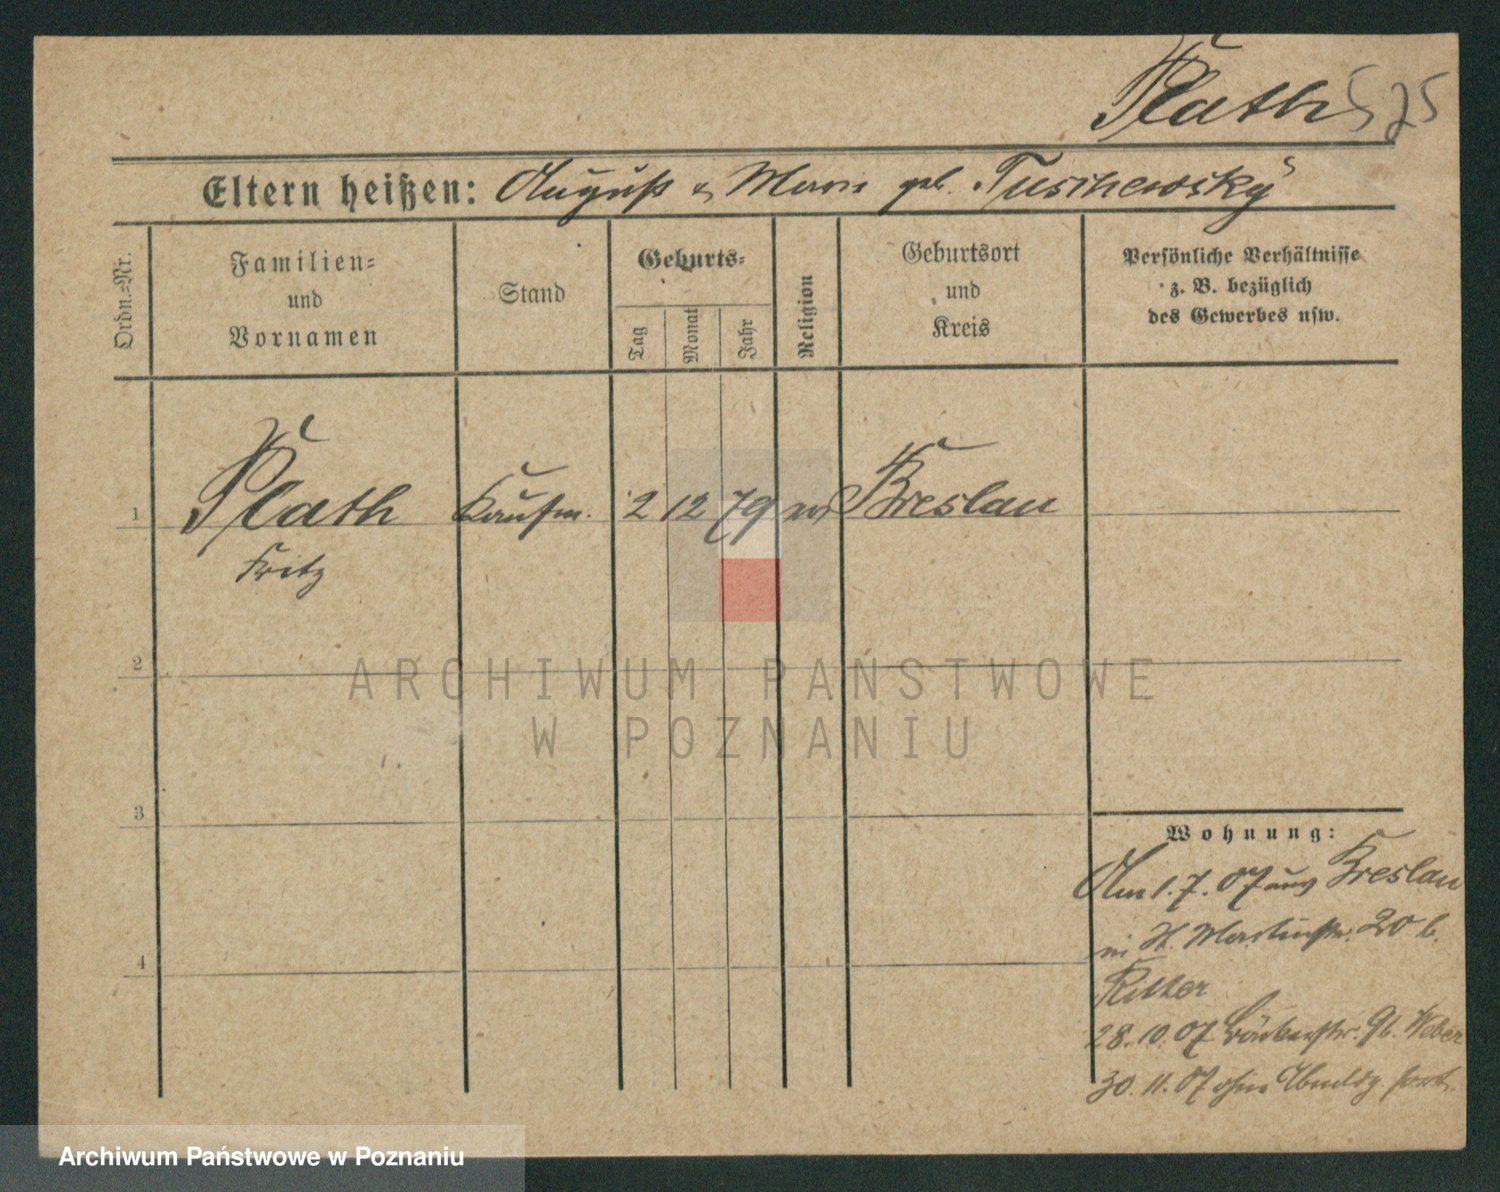 Plath 525
Eltern heißen: August u. Marie geb. Tuschewsky
Ordn.-Nr.
Familien-
und
Vornamen
Stand
Geburts-
Tag
Monat
Jahr
Religion
Geburtsort
und
Kreis
Persönliche Verhältnisse
z. B. bezüglich
des Gewerbes usw.
1 Plath Kaufm. 2 12 79 Breslau
Fritz
2
ARCHIWUM PAŃSTWOWE
W POZNANIU
3
Wohnung:
Am 1.7.07 aus Breslau
in St. Martinstr. 20 b.
Ritter
4
28.10.07 Bäckerstr. 9 b. Weber
30.11.07 ohne Abmldg. fort.
Archiwum Państwowe w Poznaniu